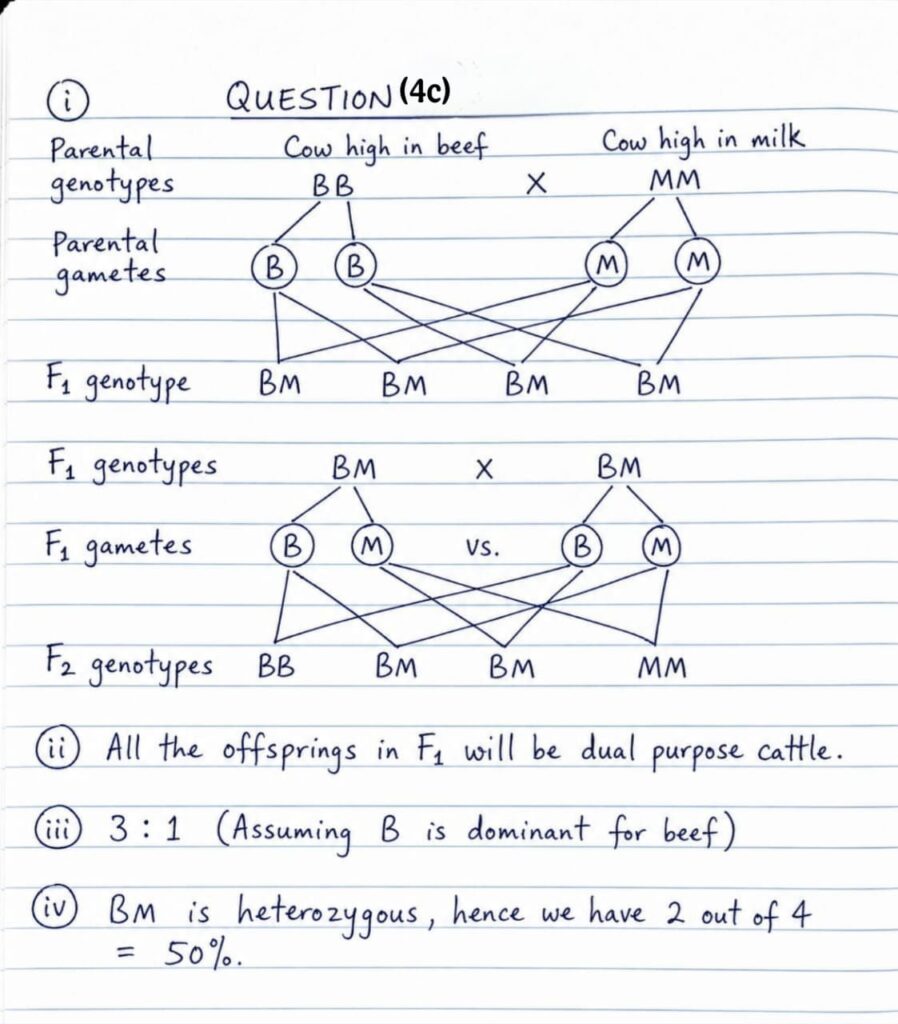 (i) QUESTION (4c)
Parental genotypes Cow high in beef Cow high in milk
BB X MM
Parental gametes B B M M
F₁ genotype BM BM BM BM
F₁ genotypes BM X BM
F₁ gametes B M vs. B M
F₂ genotypes BB BM BM MM
(ii) All the offsprings in F₁ will be dual purpose cattle.
(iii) 3 : 1 (Assuming B is dominant for beef)
(iv) BM is heterozygous, hence we have 2 out of 4
= 50%.